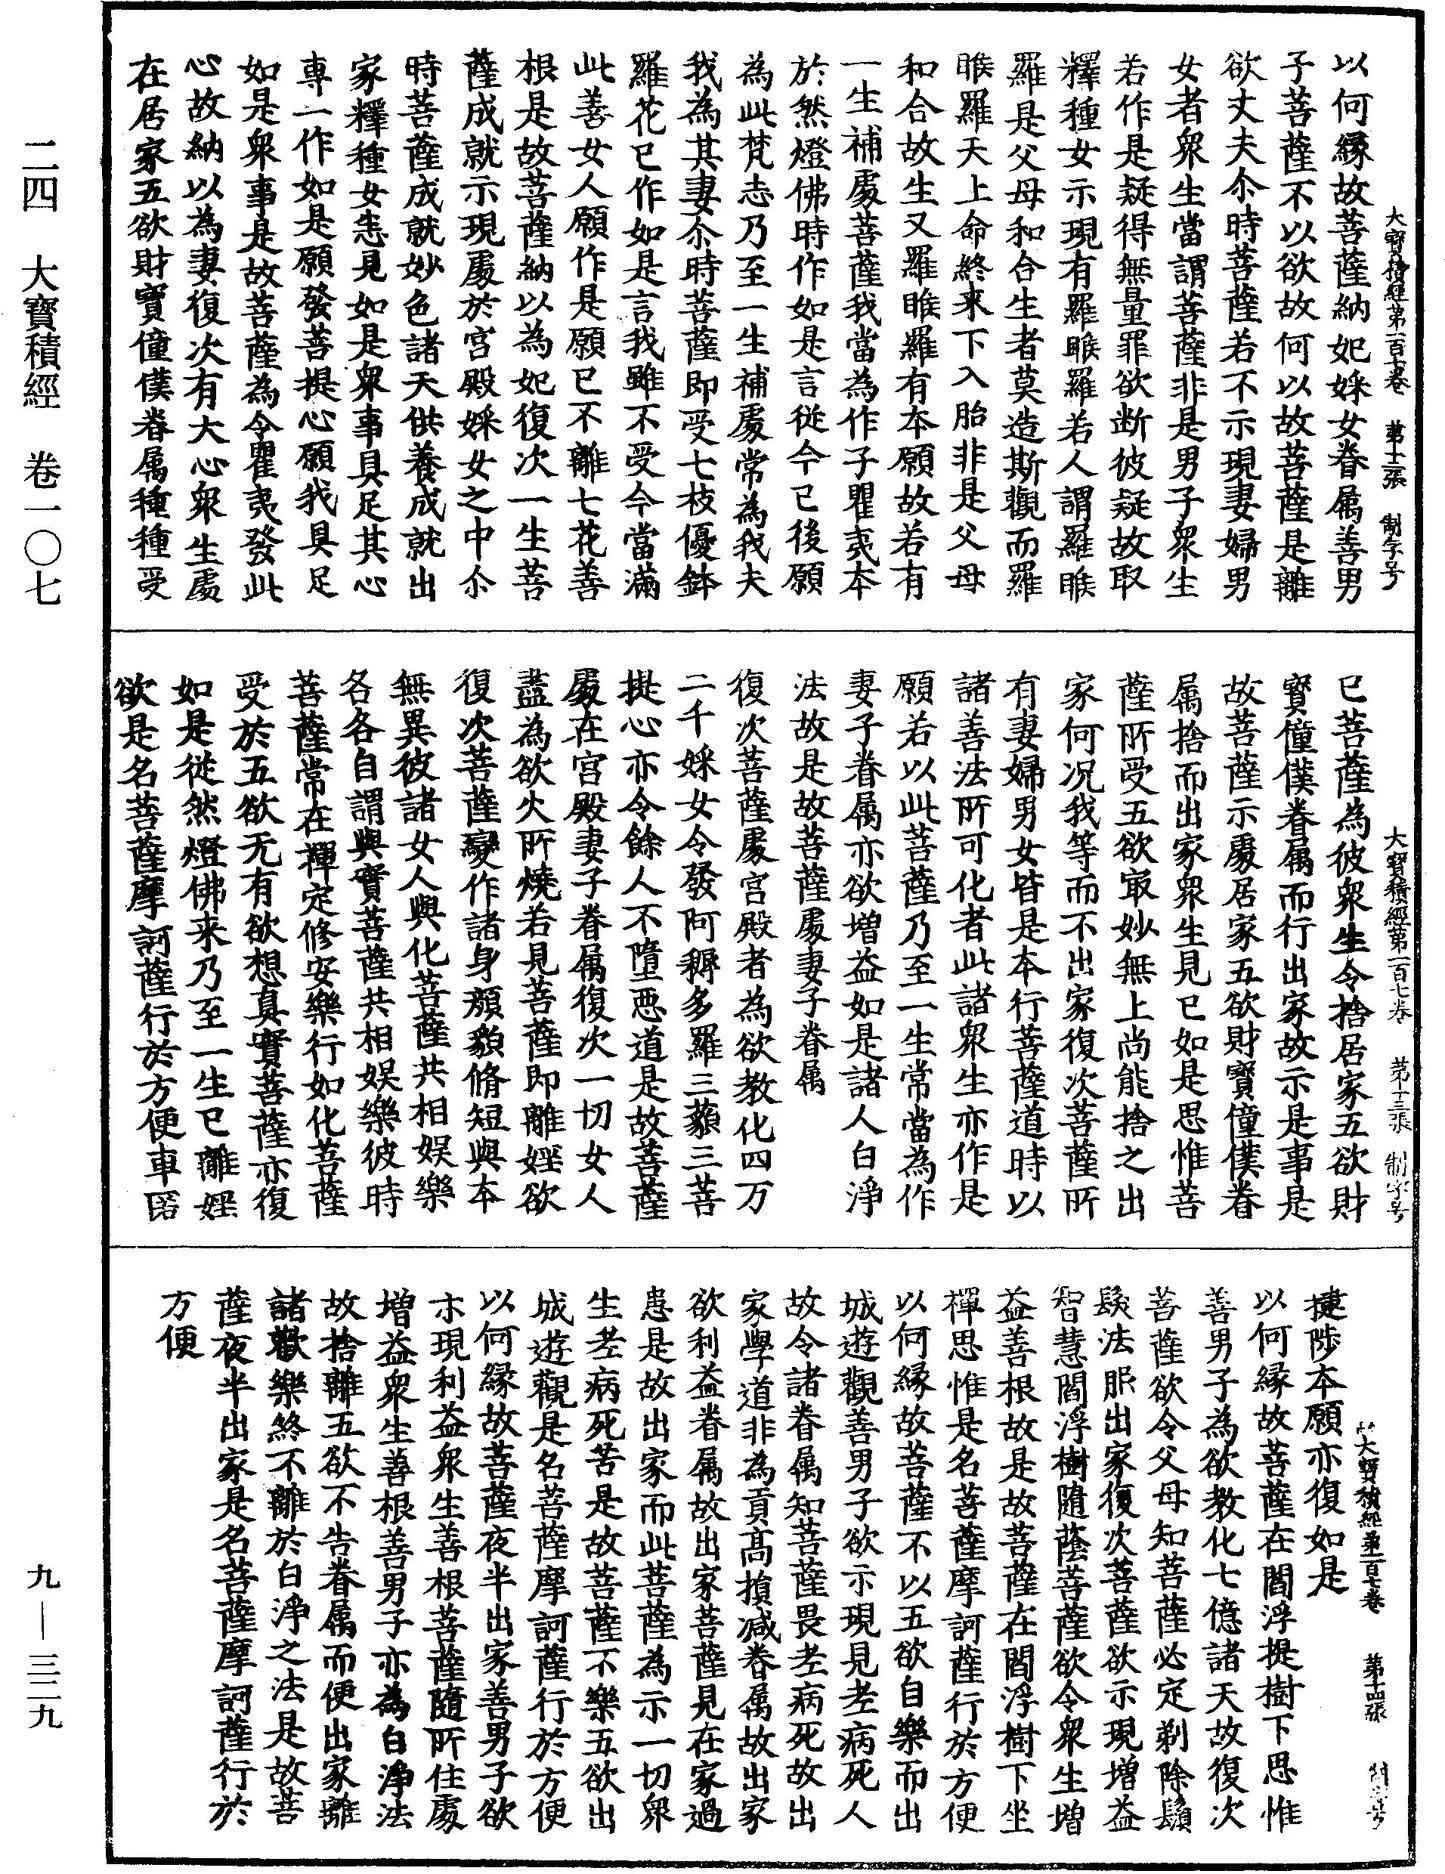 大寶積經第一百七卷　第十二張　制字号
以何緣故菩薩納妃婇女眷属善男
子菩薩不以欲故何以故菩薩是離
欲丈夫尒時菩薩若不示現妻婦男
女者衆生當謂菩薩非是男子衆生
若作是疑得無量罪欲断彼疑故取
釋種女示現有羅睺羅若人謂羅睺
羅是父母和合生者莫造斯觀而羅
睺羅天上命終来下入胎非是父母
和合故生又羅睺羅有本願故若有
一生補處菩薩我當為作子瞿夷本
於然燈佛時作如是言從今已後願
為此梵志乃至一生補處常為我夫
我為其妻尒時菩薩即受七枝優鉢
羅花已作如是言我雖不受今當滿
此善女人願作是願已不離七花善
根是故菩薩納以為妃復次一生菩
薩成就示現處於宫殿婇女之中尒
時菩薩成就妙色諸天供養成就出
家釋種女恚見如是衆事具足其心
専一作如是願發菩提心願我具足
如是衆事是故菩薩為令瞿夷發此
心故納以為妻復次有大心衆生處
在居家五欲財寶僮僕眷属種種受
大寶積經第一百七卷　第十三張　制字号
已菩薩為彼衆生令捨居家五欲財
寶僮僕眷属而行出家故示是事是
故菩薩示處居家五欲財寶僮僕眷
属捨而出家衆生見已如是思惟菩
薩所受五欲㝡妙無上尚能捨之出
家何况我等而不出家復次菩薩所
有妻婦男女皆是本行菩薩道時以
諸善法所可化者此諸衆生亦作是
願若以此菩薩乃至一生常當為作
妻子眷属亦欲增益如是諸人白淨
法故是故菩薩處妻子眷属
復次菩薩處宫殿者為欲教化四万
二千婇女令發阿耨多羅三藐三菩
提心亦令餘人不墮惡道是故菩薩
處在宫殿妻子眷属復次一切女人
盖為欲火所燒若見菩薩即離婬欲
復次菩薩變作諸身顏貌脩短與本
無異彼諸女人與化菩薩共相娛樂
各各自謂與實菩薩共相娛樂彼時
菩薩常在禪定修安樂行如化菩薩
受於五欲无有欲想真實菩薩亦復
如是從然燈佛来乃至一生已離婬
欲是名菩薩摩訶薩行於方便車匿
大寶積經第一百七卷　第十四張　制字号
揵陟本願亦復如是
以何緣故菩薩在閻浮提樹下思惟
善男子為欲教化七億諸天故復次
菩薩欲令父母知菩薩必定剃除鬚
髮法服出家復次菩薩欲示現增益
智慧閻浮樹随蔭菩薩欲令衆生增
益善根故是故菩薩在閻浮樹下坐
禪思惟是名菩薩摩訶薩行於方便
以何緣故菩薩不以五欲自樂而出
城遊觀善男子欲示現見老病死人
故令諸眷属知菩薩畏老病死故出
家學道非為貢髙損减眷属故出家
欲利益眷属故出家菩薩見在家過
患是故出家而此菩薩為示一切衆
生老病死苦是故菩薩不樂五欲出
城遊觀是名菩薩摩訶薩行於方便
以何緣故菩薩夜半出家善男子欲
示現利益衆生善根菩薩隨所住處
增益衆生善根善男子亦為白淨法
故捨離五欲不告眷属而便出家離
諸歡樂終不離於白淨之法是故菩
薩夜半出家是名菩薩摩訶薩行於
方便
二四　大寶積經　卷一〇七
九—三二九